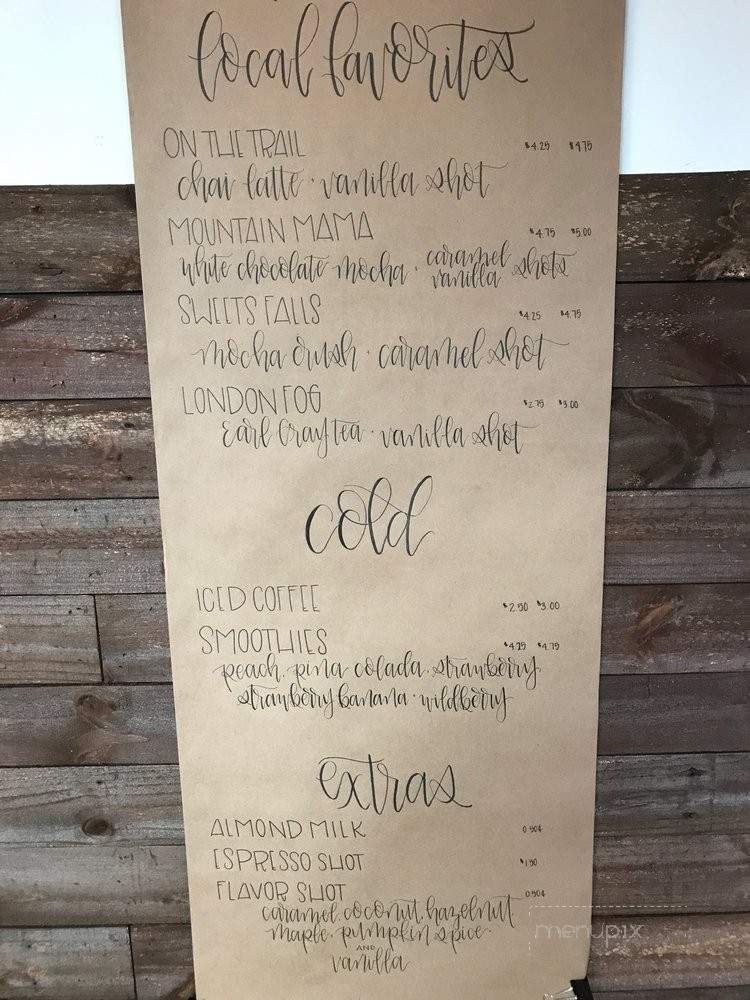 local favorites
ON THE TRAIL $4.25 $4.75
chai latte · vanilla shot
MOUNTAIN MAMA $4.75 $5.00
white chocolate mocha · caramel vanilla shots
SWEETS FALLS $4.25 $4.75
mocha crush · caramel shot
LONDON FOG $2.75 $3.00
Earl Gray tea · vanilla shot
cold
ICED COFFEE $2.50 $3.00
SMOOTHIES $4.25 $4.75
peach · pina colada · strawberry
strawberry banana · wildberry
extras
ALMOND MILK 0.50¢
ESPRESSO SHOT $1.50
FLAVOR SHOT 0.50¢
caramel · coconut · hazelnut
maple · pumpkin spice
AND
vanilla
menupix